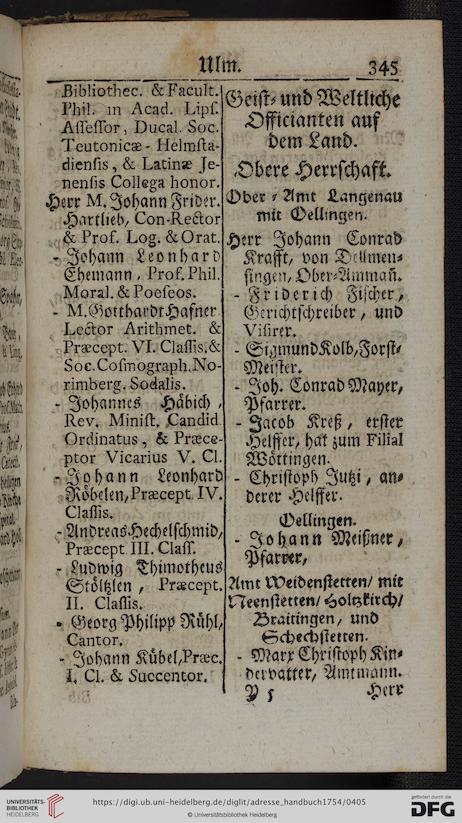 Ulm. 345
Bibliothec. & Facult.
Phil. in Acad. Lips.
Assessor, Ducal. Soc.
Teutonicæ-Helmsta-
diensis, & Latinæ Je-
nensis Collega honor.
Herr M. Johann Frider.
Hartlieb, Con-Rector
& Prof. Log. & Orat.
- Johann Leonhard
Ehemann, Prof. Phil.
Moral. & Poeseos.
- M. Gotthardt Hafner
Lector Arithmet. &
Præcept. VI. Classis, &
Soc. Cosmograph. No-
rimberg. Sodalis.
- Johannes Häbich,
Rev. Minist. Candid
Ordinatus, & Præce-
ptor Vicarius V. Cl.
- Johann Leonhard
Röbelen, Præcept. IV.
Classis.
- Andreas Hechelschmid,
Præcept III. Class.
- Ludwig Thimotheus
Stöltzlen, Præcept.
II. Classis.
- Georg Philipp Rühl,
Cantor.
- Johann Kübel, Præc.
I. Cl. & Succentor.
Geist- und Weltliche
Officianten auf
dem Land.
Obere Herrschaft.
Ober-Amt Langenau
mit Oellingen.
Herr Johann Conrad
Krafft, von Dellmen-
singen, Ober-Ammañ.
- Friderich Fischer,
Gerichtschreiber, und
Visirer.
- Sigmund Kolb, Forst-
Meister.
- Joh. Conrad Mayer,
Pfarrer.
- Jacob Kreß, erster
Helffer, hat zum Filial
Wöttingen.
- Christoph Jutzi, an-
derer Helffer.
Oellingen.
- Johann Meißner,
Pfarrer,
Amt Weidenstetten/ mit
Neenstetten/ Holtzkirch/
Braitingen, und
Schechstetten.
- Marx Christoph Kin-
dervatter, Amtmann.
Y 5 Herr
UNIVERSITÄTS-
BIBLIOTHEK
HEIDELBERG
https://digi.ub.uni-heidelberg.de/diglit/adresse_handbuch1754/0405
© Universitätsbibliothek Heidelberg
gefördert durch die
DFG